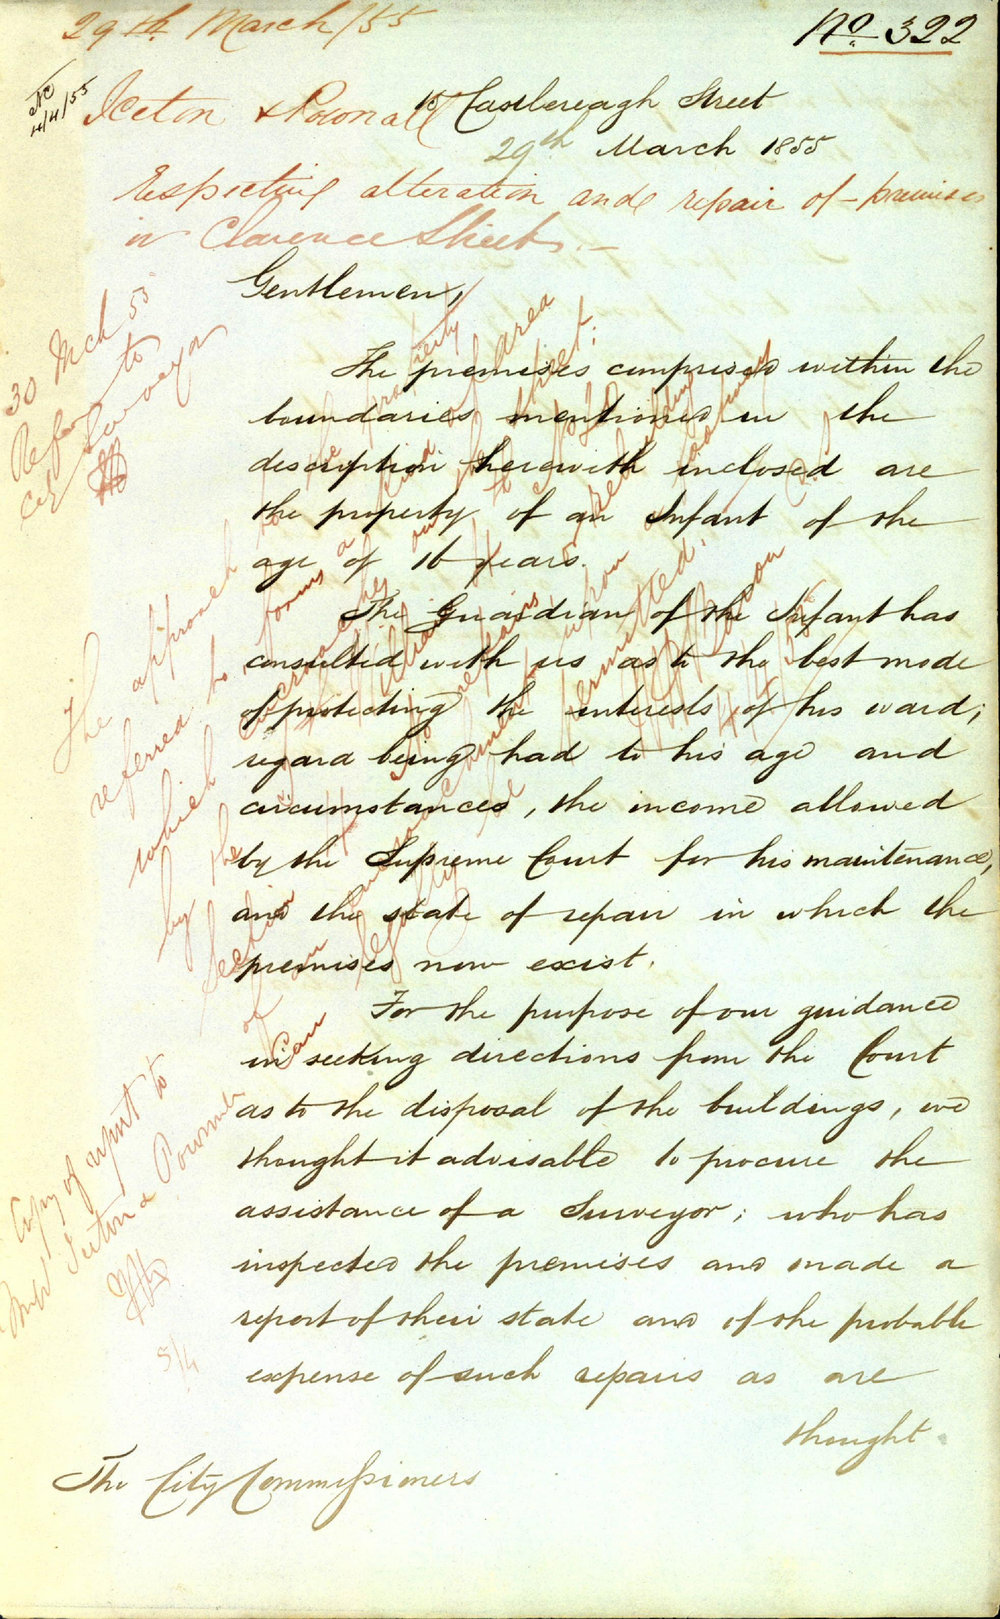 29th March/55
No. 322
4/4/55
Iceton & Pownall
15 Castlereagh Street
29th March 1855
Respecting alteration and repair of premises
in Clarence Street.
Gentlemen,
The premises comprised within the
boundaries mentioned in the
description herewith inclosed are
the property of an Infant of the
age of 16 years.
The Guardian of the Infant has
consulted with us as to the best mode
of protecting the interests of his ward;
regard being had to his age and
circumstances, the income allowed
by the Supreme Court for his maintenance,
and the state of repair in which the
premises now exist.
For the purpose of our guidance
in seeking directions from the Court
as to the disposal of the buildings, we
thought it advisable to procure the
assistance of a Surveyor; who has
inspected the premises and made a
report of their state and of the probable
expense of such repairs as are
thought
The City Commissioners
30 Mch 55
Refer to
City Surveyor
The approach
referred to forms a
which encroaches
by the
Section
of
can legally be permitted.
4/4/55
Copy of report to
Messrs Iceton & Pownall
5/4